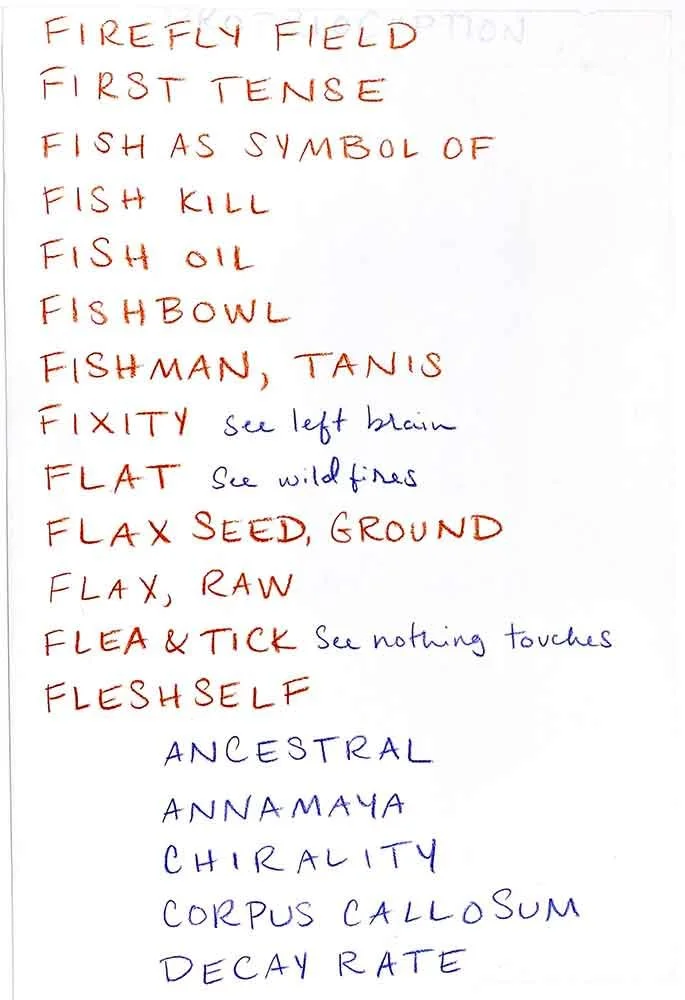 FIREFLY FIELD
FIRST TENSE
FISH AS SYMBOL OF
FISH KILL
FISH OIL
FISHBOWL
FISHMAN, TANIS
FIXITY see left brain
FLAT See wildfires
FLAX SEED, GROUND
FLAX, RAW
FLEA & TICK See nothing touches
FLESHSELF
ANCESTRAL
ANNAMAYA
CHIRALITY
CORPUS CALLOSUM
DECAY RATE